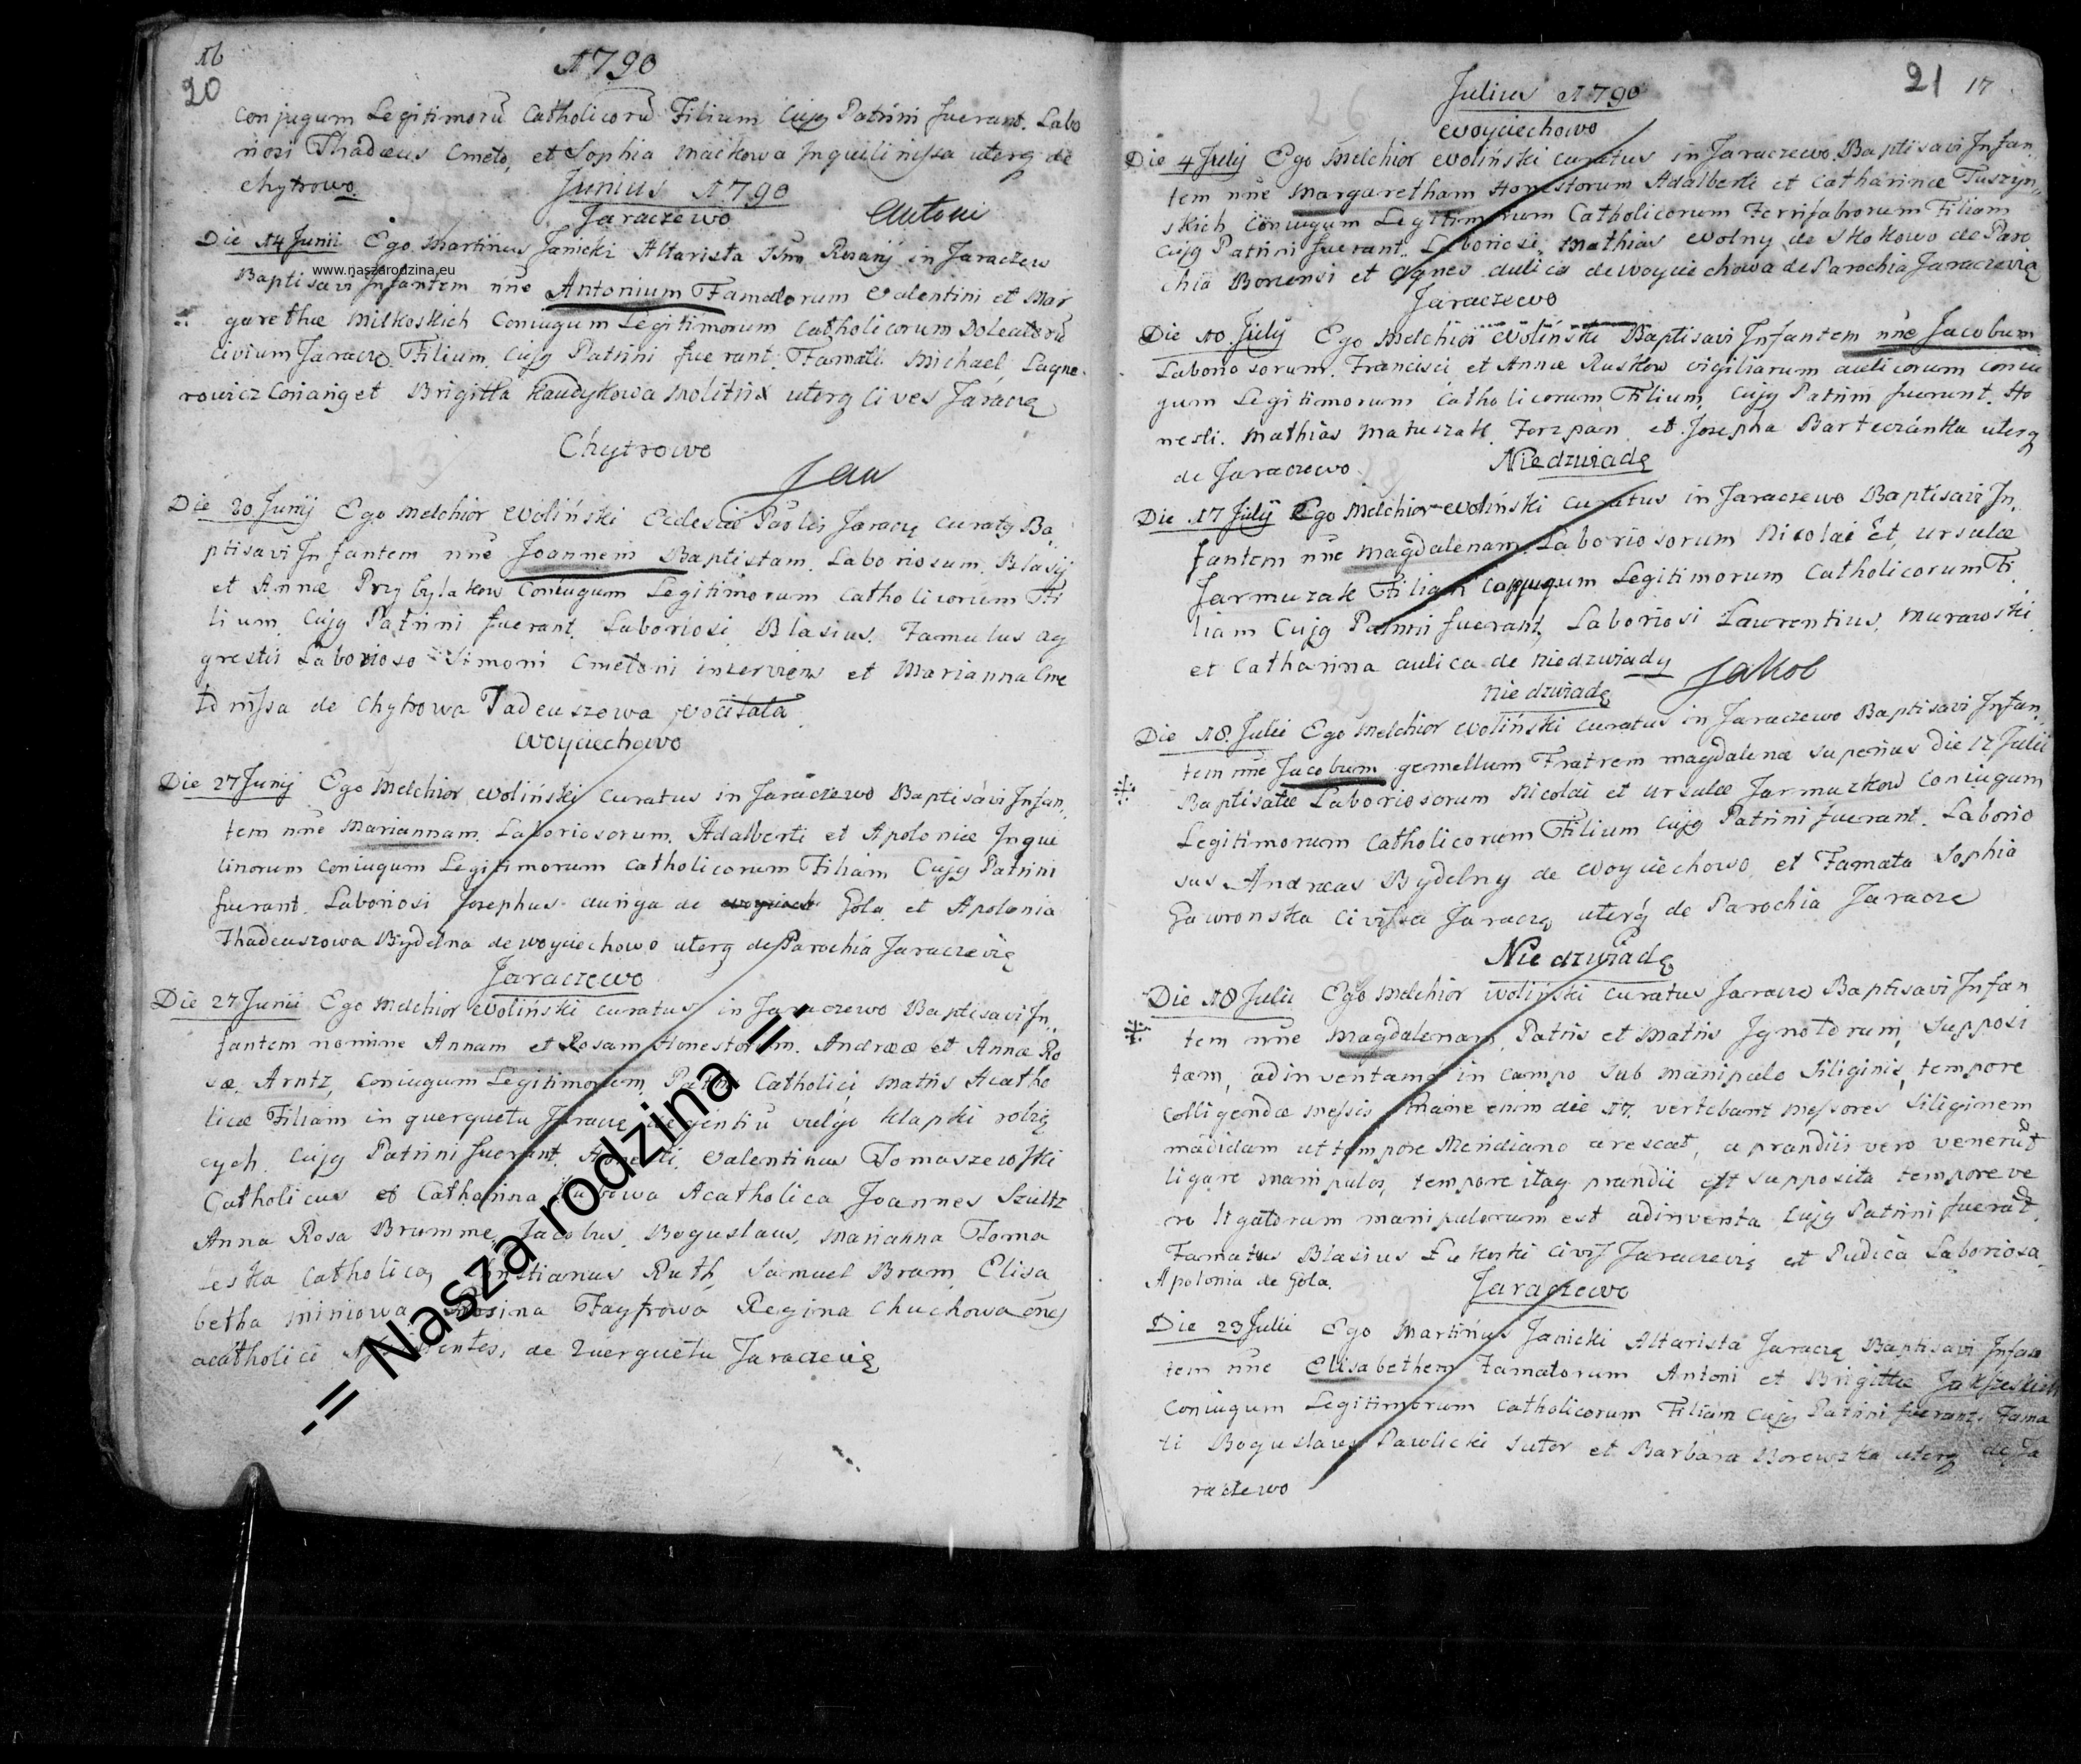 16
20
1790
conjugum Legitimorū Catholicorū Filium Cujg Patrini fuerant. Labo
riosi Thadæus Cmeto, et Sophia Maćkowa Inquilinissa uterq de
Chytrowo.
Junius 1790
Jaraczewo
Antoni
Die 14 Junii Ego Martinus Janicki Altarista Rosarij in Jaraczew
www.naszarodzina.eu
Baptisavi Infantem nne Antonium Famatorum Valentini et Mar
garethæ Milkoskich Coniugum Legitimorum Catholicorum Doleatorū
Civium Jaracze. Filium. Cujg Patrini fuerant. Famati Michael
rowicz et Brigitta Kaudykowa uterq Cives Jaracze
Chytrowo
Jan
Die 20 Junij Ego Melchior Woliński Ecclesiæ Jaracze Curatg Ba,
ptisavi Infantem nne Joannem Baptistam. Laboriosum. Blasij
et Annæ Przybylakow Coniugum Legitimorum Catholicorum Fi
lium. Cujg Patrini fuerant. Laboriosi Blasius. Famulus ag
grestis Laborioso Simoni Cmetoni inserviens et Marianna Cme
tonissa de Chytrowa Tadeuszowa vocitata.
Woyciechowo
Die 27 Junij Ego Melchior Woliński Curatus in Jaraczewo Baptisavi Infan,
tem nne Mariannam. Laboriosorum. Adalberti et Apoloniæ Inqui
linorum Coniugum Legitimorum Catholicorum Filiam Cujg Patrini
fuerant. Laboriosi Josephus auriga de Gola et Apolonia
Thadeuszowa Bydelna de Woyciechowo uterq de Parochia Jaraczevię
Jaraczewo
Die 27 Junii Ego Melchior Woliński Curatus in Jaraczewo Baptisavi In,
fantem nomine Annam et Rosam Honestorum. Andreæ et Annæ Ro
sæ Arntz, Coniugum Legitimorum Patris Catholici Matris Acatho
licæ Filiam in querquetu Jaracze degentiū vulgo klapki robią
cych. Cujg Patrini fuerant. Honesti. Valentinus Tomaszewski
Catholicus et Catharina Acatholica Joannes Szultz
Anna Rosa Brumme, Jacobus, Boguslaus, Marianna Toma
leska Catholica, Christianus Ruth, Samuel Bram, Elisa
betha Miniowa, Rosina Fayfrowa Regina Chuchowa
acatholici de querquetu Jaraczevię
-= Nasza rodzina =-
21 17
Julius 1790
Woyciechowo
Die 4 Julij Ego Melchior Woliński Curatus in Jaraczewo Baptisavi Infan
tem nne Margaretham Honestorum Adalberti et Catharinæ Tuszyn,
skich Coniugum Legitimorum Catholicorum Ferrifabrorum Filiam
Cujg Patrini fuerant. Laboriosi Mathias Wolny de Skokowo de Paro
chia Borensi et Agnes aulica de Woyciechowa de Parochia Jaraczevię
Jaraczewo
Die 10 Julij Ego Melchior Woliński Baptisavi Infantem nne Jacobum
Laboriosorum. Francisci et Annæ Ruskow vigiliarum aulicorum Coniu
gum Legitimorum Catholicorum Filium, Cujg Patrini fuerunt. Ho
nesti. Mathias Matuszak Forzpan et Josepha Bartewianka uterq
de Jaraczewo.
Niedzwiadę
Die 17 Julij Ego Melchior Woliński Curatus in Jaraczewo Baptisavi In,
fantem nne Magdalenam Laboriosorum Nicolai Et, Ursulæ
Jarmuzak Filiam Coniugum Legitimorum Catholicorum Fi
liam Cujg Patrini fuerant, Laboriosi Laurentius, Murawski
et Catharina aulica de Niedzwiady
Jakob
Niedzwiadę
Die 18 Julii Ego Melchior Woliński Curatus in Jaraczewo Baptisavi Infan,
tem nne Jacobum gemellum Fratrem Magdalenæ superius Die 17 Julii
Baptisatæ Laboriosorum Nicolai et Ursulæ Jarmuzkow Coniugum
Legitimorum Catholicorum Filium Cujg Patrini fuerant. Laborio
sus Andreas Bydelny de Woyciechowo, et Famata Sophia
Gawronska Civissa Jaraczę uterq de Parochia Jaracze
Niedzwiadę
Die 18 Julii Ego Melchior Woliński Curatus Jaracze Baptisavi Infan
tem nne Magdalenam, Patris et Matris Ignotorum, supposi
tam, adinventam in campo sub manipulo Siliginis, tempore
Colligendæ Messis Mane enim die 17 vertebant Messores Siliginem
madidam ut tempore Meridiano arescat, a prandiis vero venerūt
ligare manipulos, tempore itaq prandii est supposita tempore ve
ro ligatorum manipulorum est adinventa Cujg Patrini fuerāt.
Famatus Blasius civis Jaraczevię et Pudica Laboriosa
Apolonia de Gola.
Jaraczewo
Die 23 Julii Ego Martinus Janicki Altarista Jaraczę Baptisavi Infan
tem nne Elisabethem Famatorum Antoni et Brigittæ
Coniugum Legitimorum Catholicorum Filiam Cujg Patrini fuerant, Fama
ti Boguslaus Pawlicki Sutor et Barbara uterq de Ja
raczewo